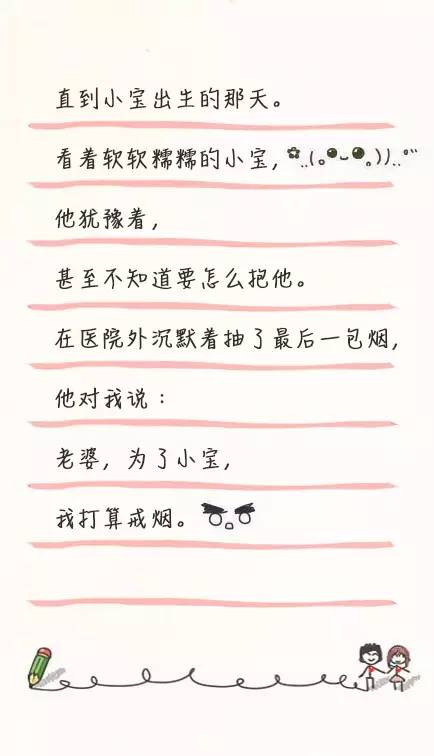 直到小宝出生的那天。
看着软软糯糯的小宝,
他犹豫着,
甚至不知道要怎么抱他。
在医院外沉默着抽了最后一包烟,
他对我说:
老婆, 为了小宝,
我打算戒烟。